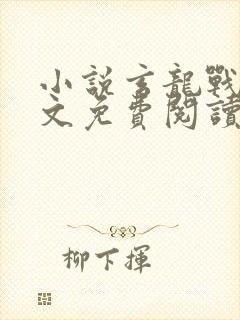 小說玄龍戰
文免費閱讀
柳下揮